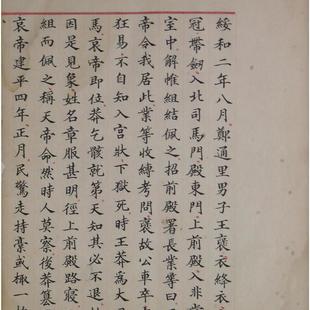 綏和二年八月鄭通里男子王褒衣絳衣
冠帶劒入北司馬門殿東門上前殿入非常
室中解帷組結佩之招前殿署長業等曰
帝令我居此業等收縛考問褒故公車卒
狂易不自知入宮狀下獄死時王莽為大
馬哀帝即位莽乞骸就第天知其必不退
因是見象姓名章服甚明徑上前殿路寢
組而佩之稱天帝命然時人莫察後莽簒
哀帝建平四年正月民驚走持稾或棷一